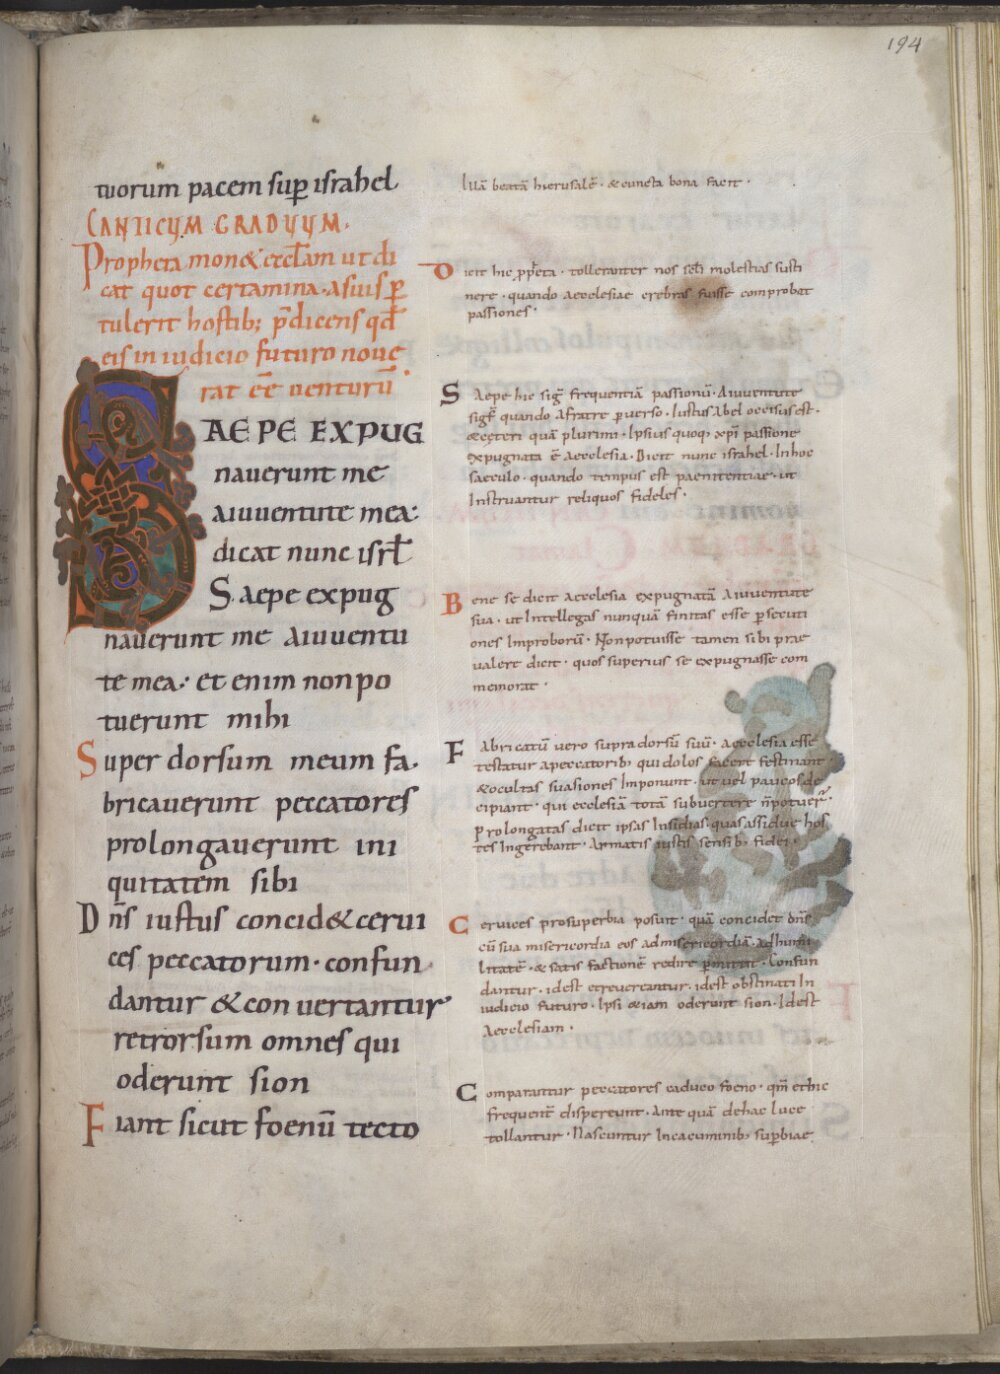 194
tuorum pacem sup israhel
CANTICUM GRADUUM.
Propheta mon& ecclam ut di
cat quot certamina. a suis p
tulerit hostib; pdicens qd
eis in iudicio futuro noue
rat ee uenturu.
SAEPE EXPUG
nauerunt me
a iuuentute mea:
dicat nunc isrl
Saepe expug
nauerunt me a iuuentu
te mea: et enim non po
tuerunt mihi
Super dorsum meum fa.
bricauerunt peccatores
prolongauerunt ini
quitatem sibi
Dns iustus concid& cerui
ces peccatorum. confun
dantur & conuertantur
retrorsum omnes qui
oderunt sion
Fiant sicut foenū tecto
luā beatā hierusalē. & cuncta bona facit.
Dicit hic ppheta. tolleranter nos sclī molestias susti
nere. quando aecclesiae crebras fuisse comprobat
passiones.
Saepe hic sig frequentiā passionū. A iuuentute
sigf quando a fratre peruerso. Iustus abel occisus est.
& ceteri quā plurimi. Ipsius quoq; xpi passione
expugnata ē aecclesia. Dicit nunc israhel. In hoc
saeculo. quando tempus est paenitentiae. ut
Instruantur reliquos fideles.
Bene se dicit aecclesia expugnatā A iuuentute
sua. ut Intellegas nunquā finitas esse psecuti
ones Improborū. Non potuisse tamen sibi prae
ualere dicit. quos superius se expugnasse com
memorat.
Fabricatū uero supra dorsū suū. aecclesia esse
testatur a peccatorib; qui dolos facere festinant
& ocultas suasiones Imponunt. ut uel paucos de
cipiant. qui ecclesiā totā subuertere n potuer.
Prolongatas dicit ipsas Insidias. quas assidue hos
tes Ingerebant. Armatis iustis sensib; fidei.
Ceruices pro superbia posuit. quā concidet dns
cū sua misericordia eos ad misericordiā. ad humi
litatē. & satis factionē redire pmittit. Confun
dantur. idest & reuereantur. idest obstinati In
iudicio futuro. Ipsi etiam oderunt sion. Idest
Aecclesiam.
Comparantur peccatores caduco foeno. qm et hic
frequent dispereunt. Ante quā de hac luce
tollantur. Nascuntur In cacuminib; supbiae